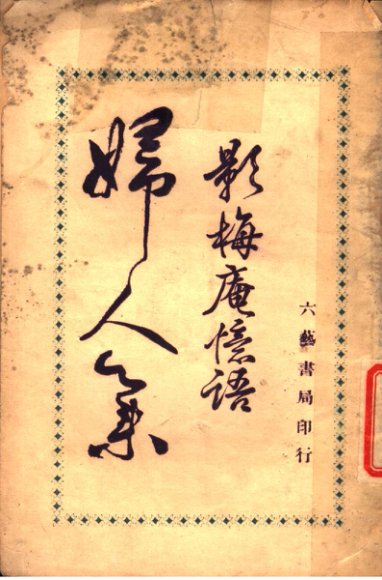 六藝書局印行
影梅庵憶語
婦人集